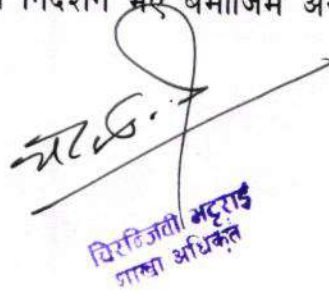 निर्देशन भए बमोजिम
चिरन्जिवी भट्टराई
शाखा अधिकृत